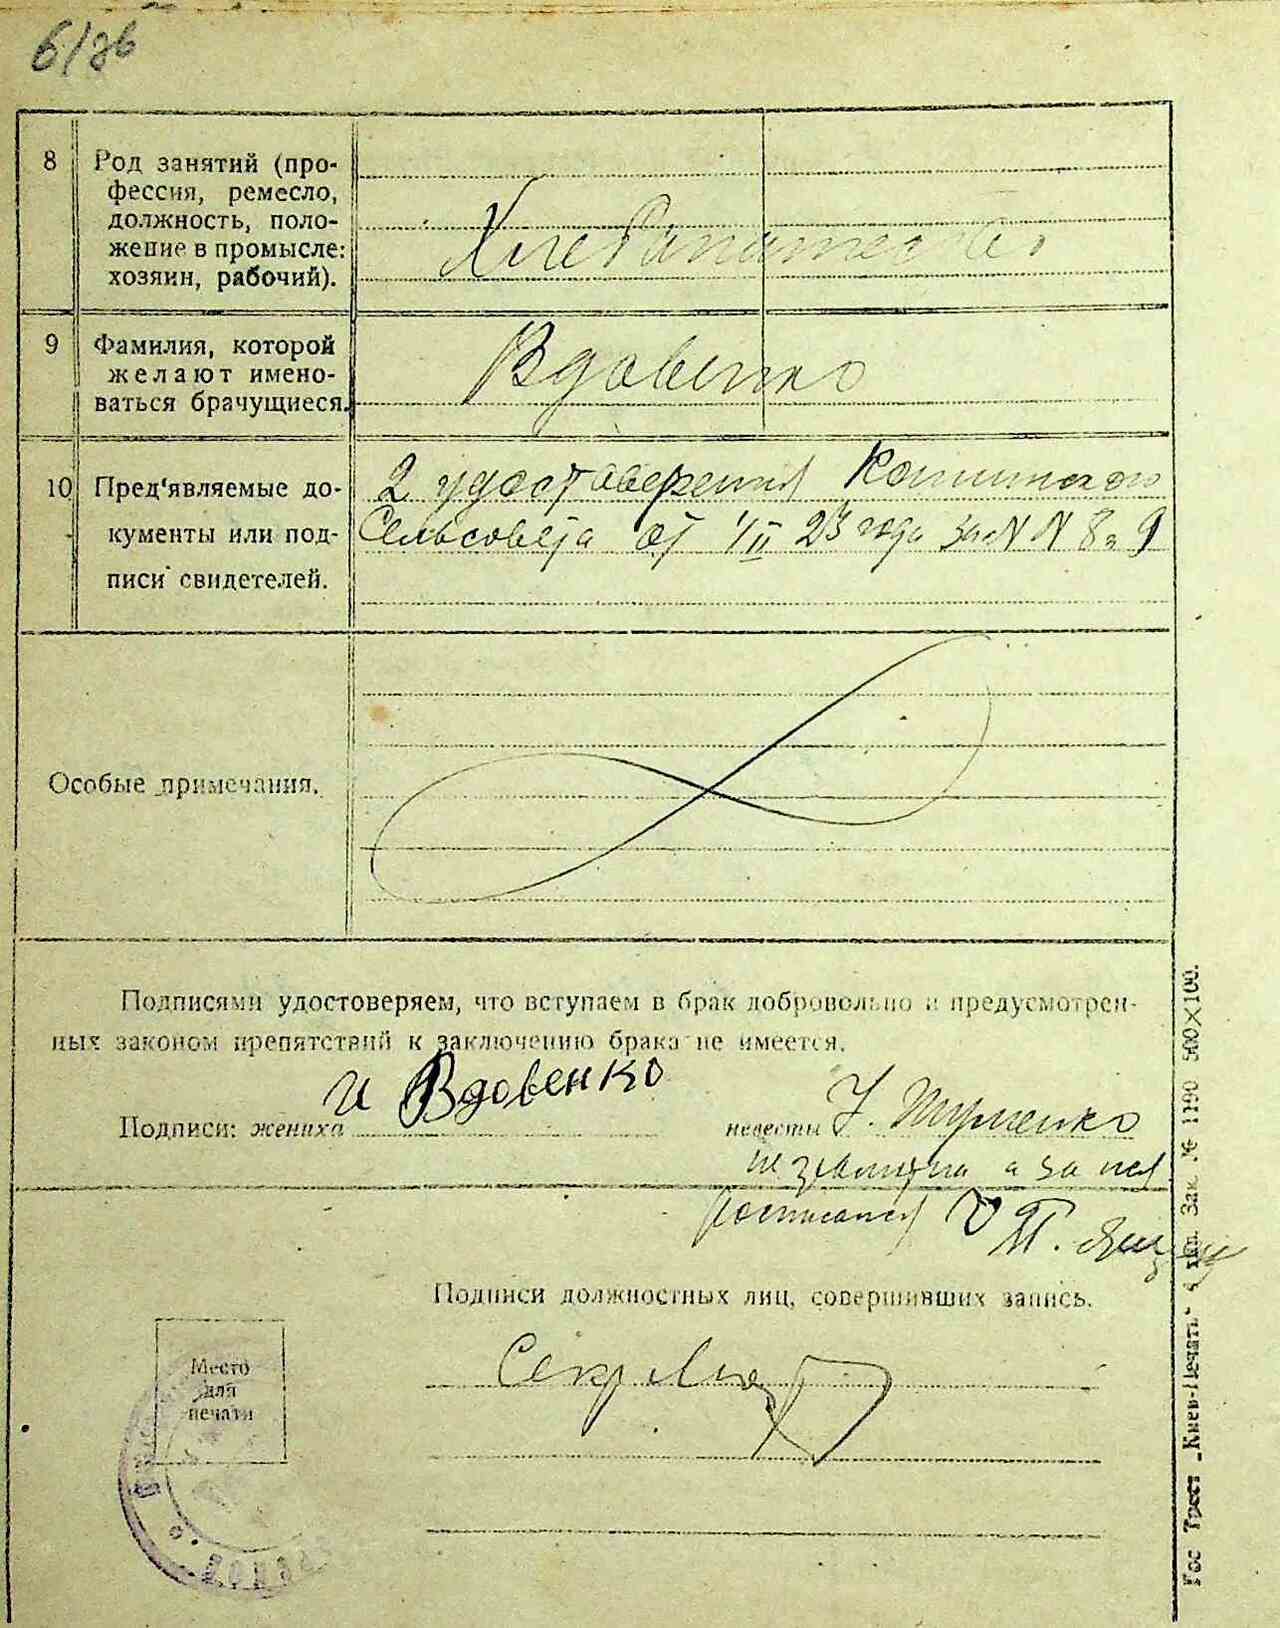 8 Род занятий (про-
фессия, ремесло,
должность, поло-
жение в промысле:
хозяин, рабочий).
9 Фамилия, которой
желают имено-
ваться брачущиеся.
Вдовенко
10 Пред'являемые до-
кументы или под-
писи свидетелей.
2 удоставерения
Сельсовета от 1/II 23 года за № № 8 и 9
Особые примечания.
Подписями удостоверяем, что вступаем в брак добровольно и предусмотрен-
ных законом препятствий к заключению брака не имеется.
Подписи: жениха И Вдовенко
невесты
а за нея
росписался
Подписи должностных лиц, совершивших запись.
Секр
Место
для
печати
Гос Трест „Киев-Печать“ Зак. № 1190 500×100.